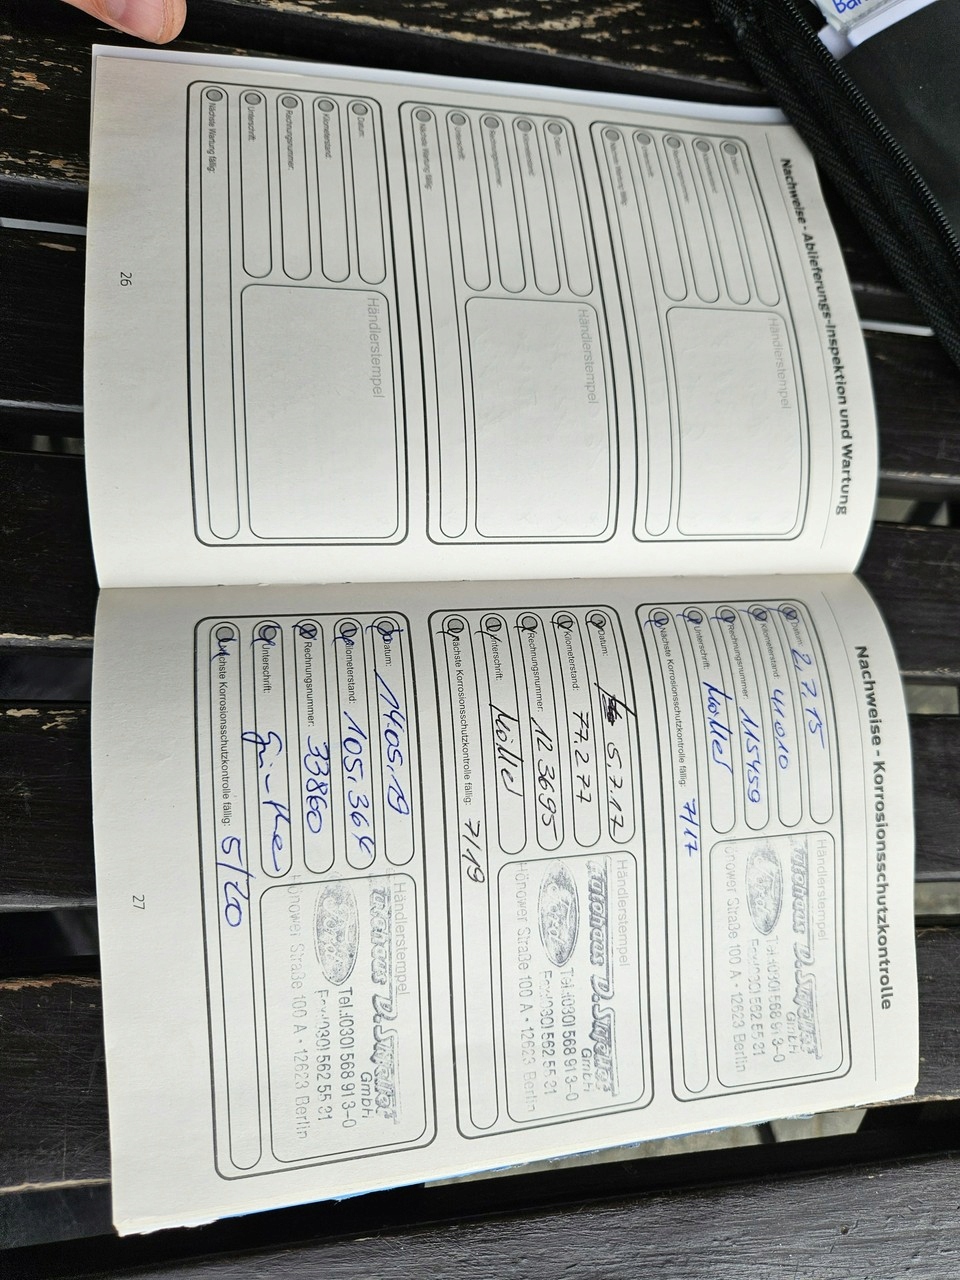 Nachweise - Ablieferungs-Inspektion und Wartung
Datum:
Kilometerstand:
Rechnungsnummer:
Unterschrift:
Nächste Wartung fällig:
Händlerstempel
Datum:
Kilometerstand:
Rechnungsnummer:
Unterschrift:
Nächste Wartung fällig:
Händlerstempel
Datum:
Kilometerstand:
Rechnungsnummer:
Unterschrift:
Nächste Wartung fällig:
Händlerstempel
26
Nachweise - Korrosionsschutzkontrolle
Datum: 2.7.15
Kilometerstand: 41010
Rechnungsnummer: 115459
Unterschrift:
Nächste Korrosionsschutzkontrolle fällig: 7/17
Händlerstempel
Autohaus
GmbH
Tel.:(030) 568 91 3-0
Fax:(030) 562 55 31
Hönower Straße 100 A • 12623 Berlin
Datum: 5.7.17
Kilometerstand: 77277
Rechnungsnummer: 123695
Unterschrift:
Nächste Korrosionsschutzkontrolle fällig: 7/19
Händlerstempel
Autohaus
GmbH
Tel.:(030) 568 91 3-0
Fax:(030) 562 55 31
Hönower Straße 100 A • 12623 Berlin
Datum: 14.05.19
Kilometerstand:
Rechnungsnummer: 33860
Unterschrift:
Nächste Korrosionsschutzkontrolle fällig: 5/20
Händlerstempel
Autohaus
GmbH
Tel.:(030) 568 91 3-0
Fax:(030) 562 55 31
Hönower Straße 100 A • 12623 Berlin
27